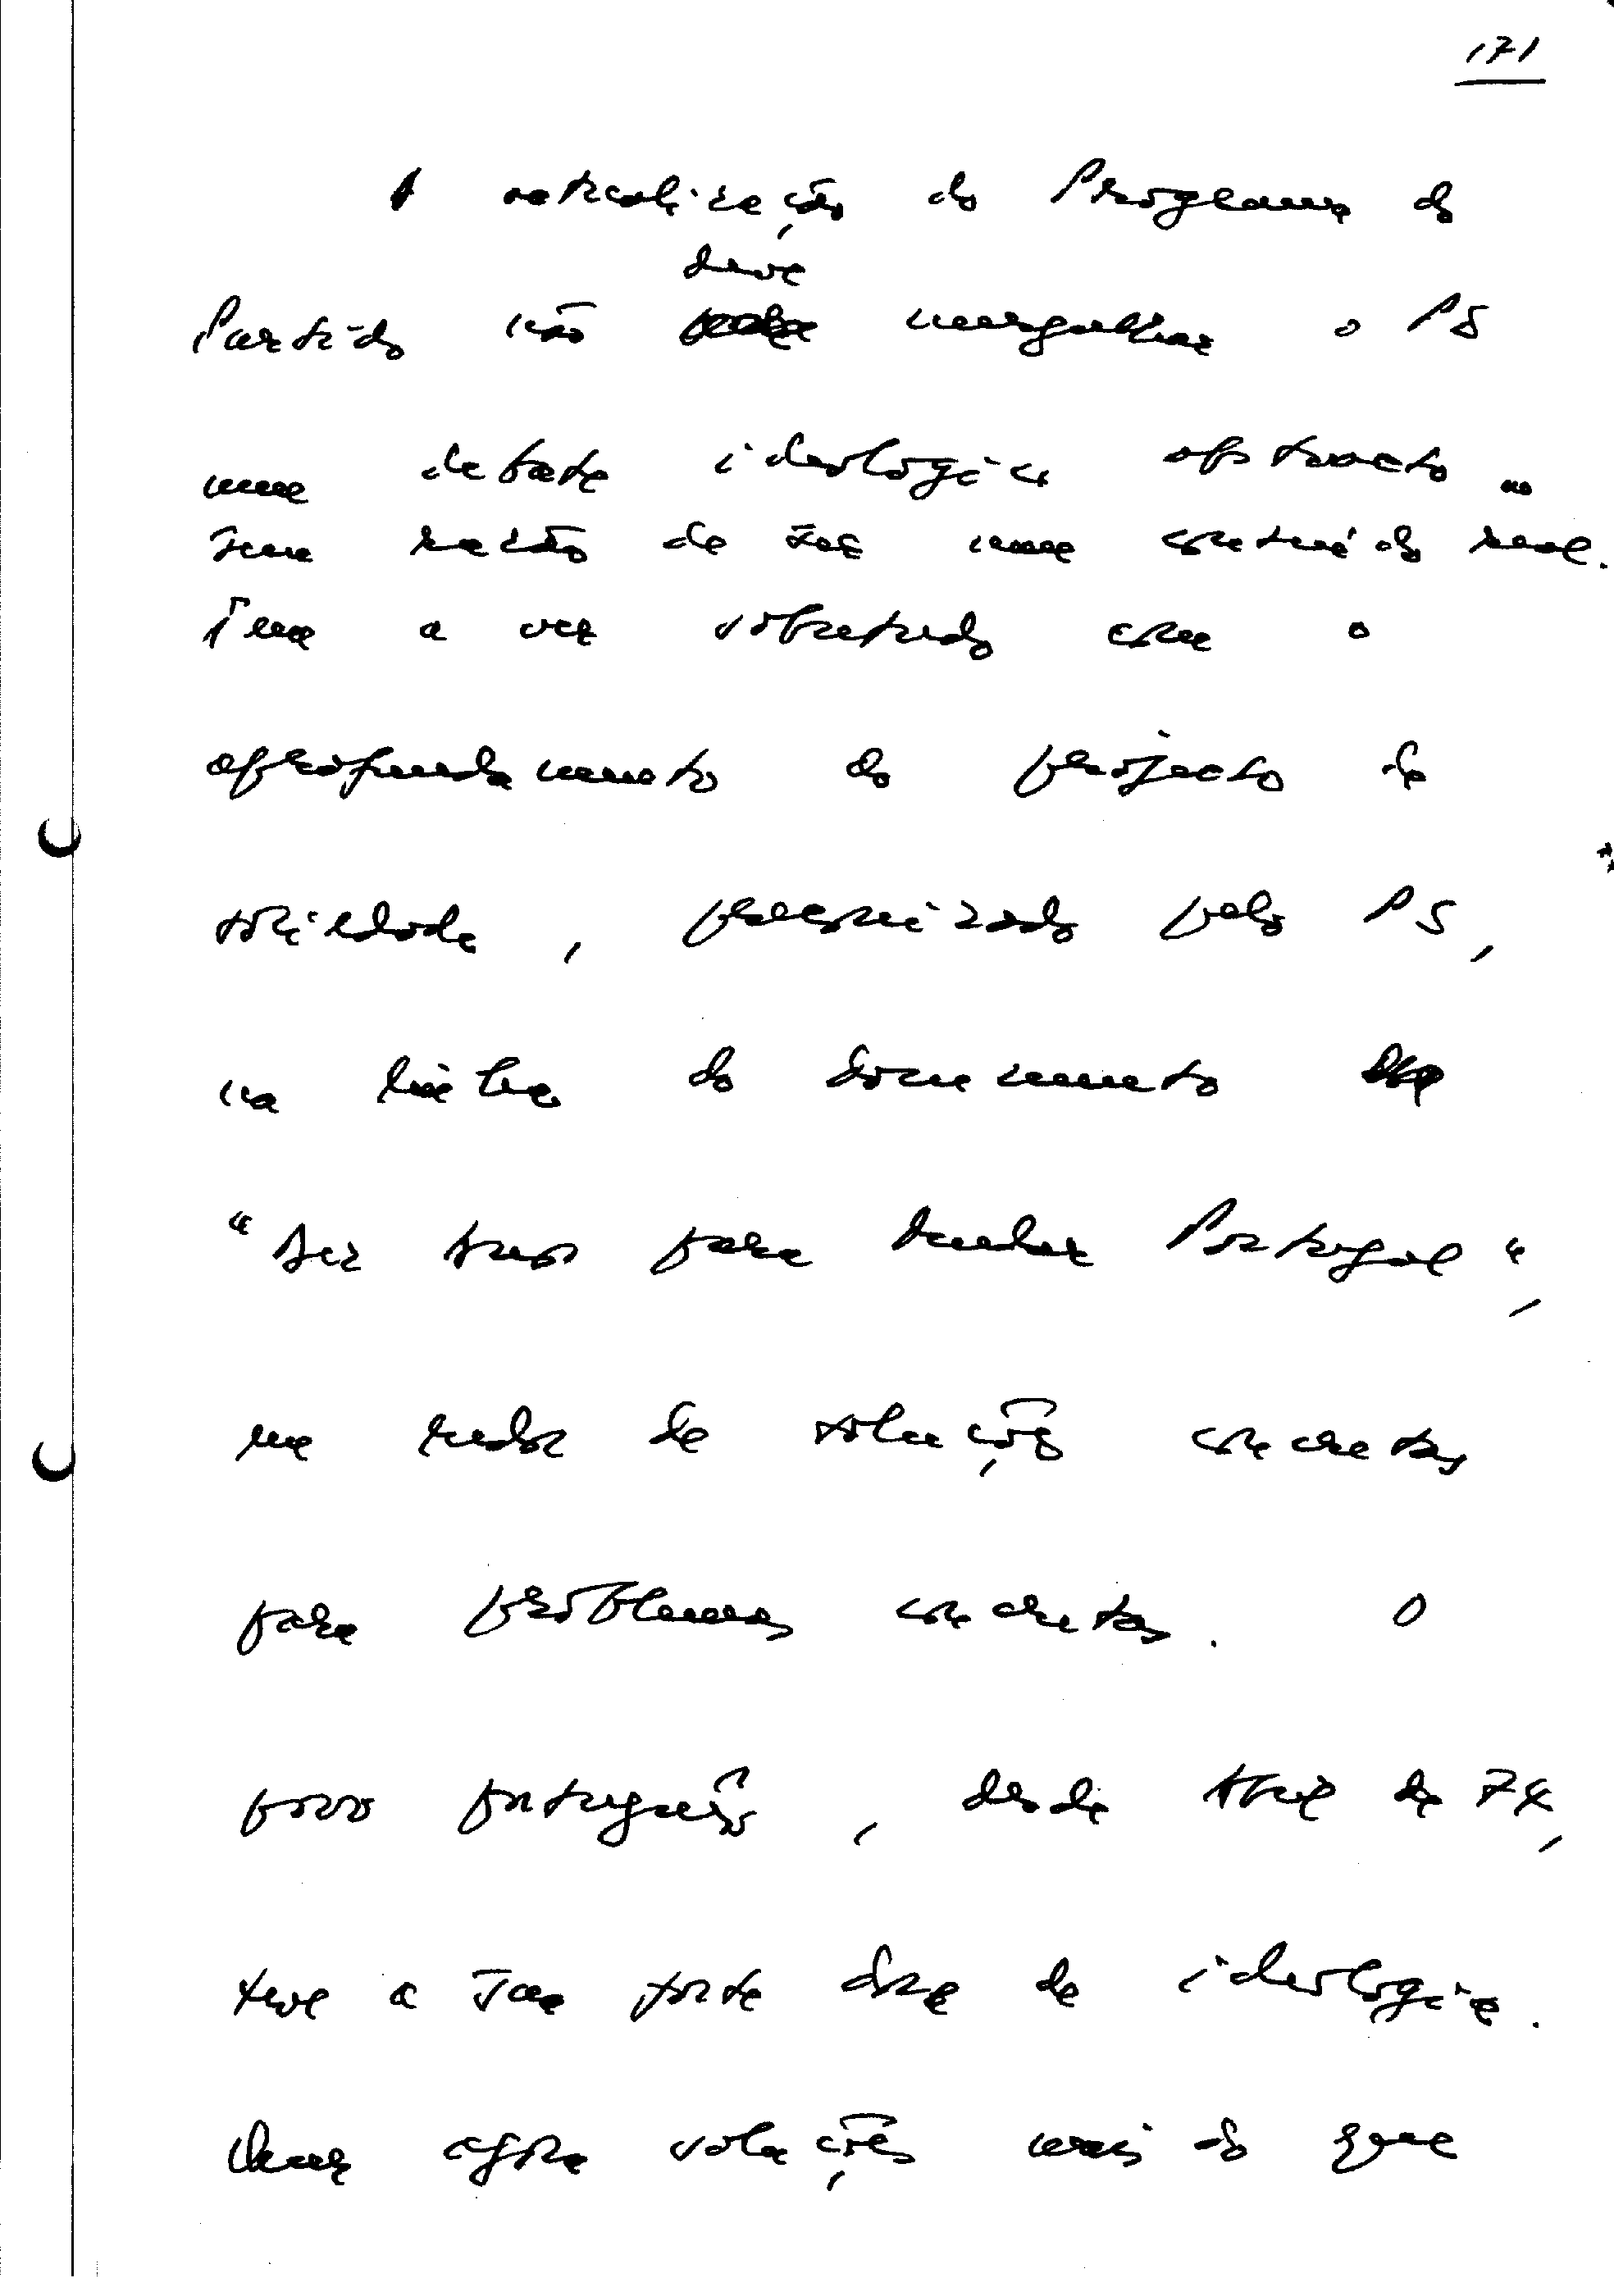 171
A actualização do Programa do
deve
Partido não mergulhar o PS
num debate ideológico abstracto
sem razão de ser nem conteúdo real.
Tem a ver sobretudo com o
aprofundamento do projecto de
sociedade, preconizado pelo PS,
na linha do documento
"Dez anos para mudar Portugal",
em redor de soluções concretas
para problemas concretos. O
povo português, desde Abril de 74,
teve a sua forte dose de ideologia.
Quer agora soluções mais do que